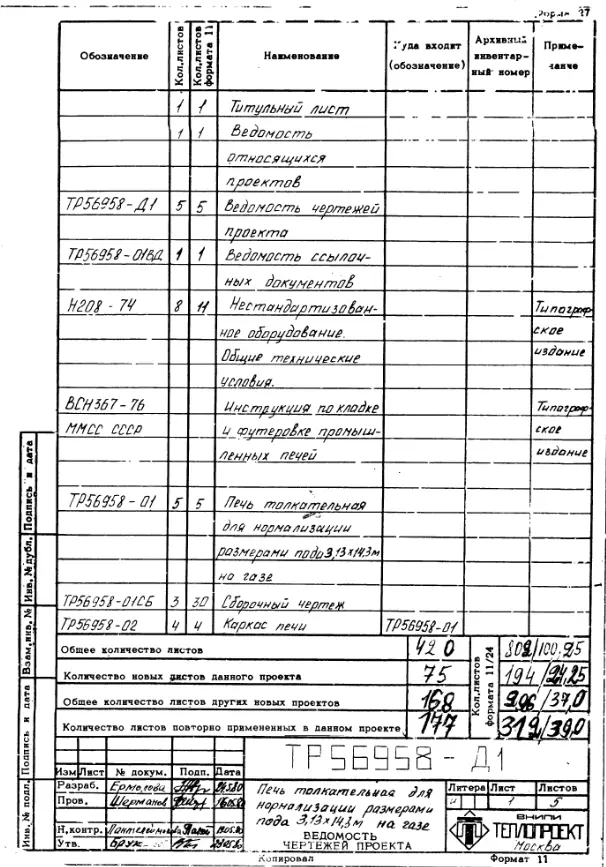 Форма 27
Обозначение Кол.листов Кол.листов формата 11 Наименование Куда входит (обозначение) Архивный инвентарный номер Примечание
1 1 Титульный лист
1 1 Ведомость
относящихся
проектов
ТР56958-Д1 5 5 Ведомость чертежей
проекта
ТР56958-01ВД 1 1 Ведомость ссылоч-
ных документов
Н208-74 8 11 Нестандартизован- Типограф-
ное оборудование. ское
Общие технические издание
условия.
ВСН367-76 Инструкция по кладке Типограф-
ММСС СССР и футеровке промыш- ское
ленных печей издание
ТР56958-01 5 5 Печь толкательная
для нормализации
размерами пода 3,13х14,3м
на газе
ТР56958-01СБ 3 30 Сборочный чертеж
ТР56958-02 4 4 Каркас печи ТР56958-01
Общее количество листов 420
Количество новых листов данного проекта 75 194/24,25
Общее количество листов других новых проектов 168
Количество листов повторно примененных в данном проекте 177 319/39,0
Кол.листов формата 11/24
ТР56958-Д1
Изм Лист № докум. Подп. Дата
Разраб. Ермолова
Пров. Шерманов
Н.контр.
Утв.
Печь толкательная для
нормализации размерами
пода 3,13х14,3м на газе
ВЕДОМОСТЬ
ЧЕРТЕЖЕЙ ПРОЕКТА
Литера Лист Листов
и 1 5
ВНИПИ
ТЕПЛОПРОЕКТ
Москва
Копировал Формат 11
Инв.№ подл. Подпись и дата Взам.инв.№ Инв.№ дубл. Подпись и дата